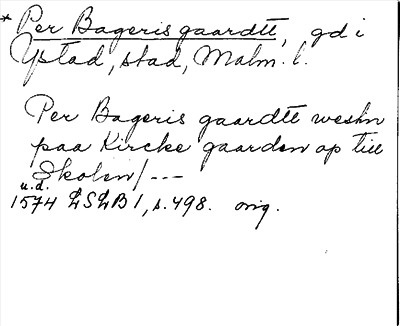 * Per Bageris gaardtt, gd i
Ystad, stad, Malm. l.
Per Bageris gaardtt westen
paa Kircke gaarden op till
Skolen/---
u.d.
1574 LSLB 1, s. 498. orig.